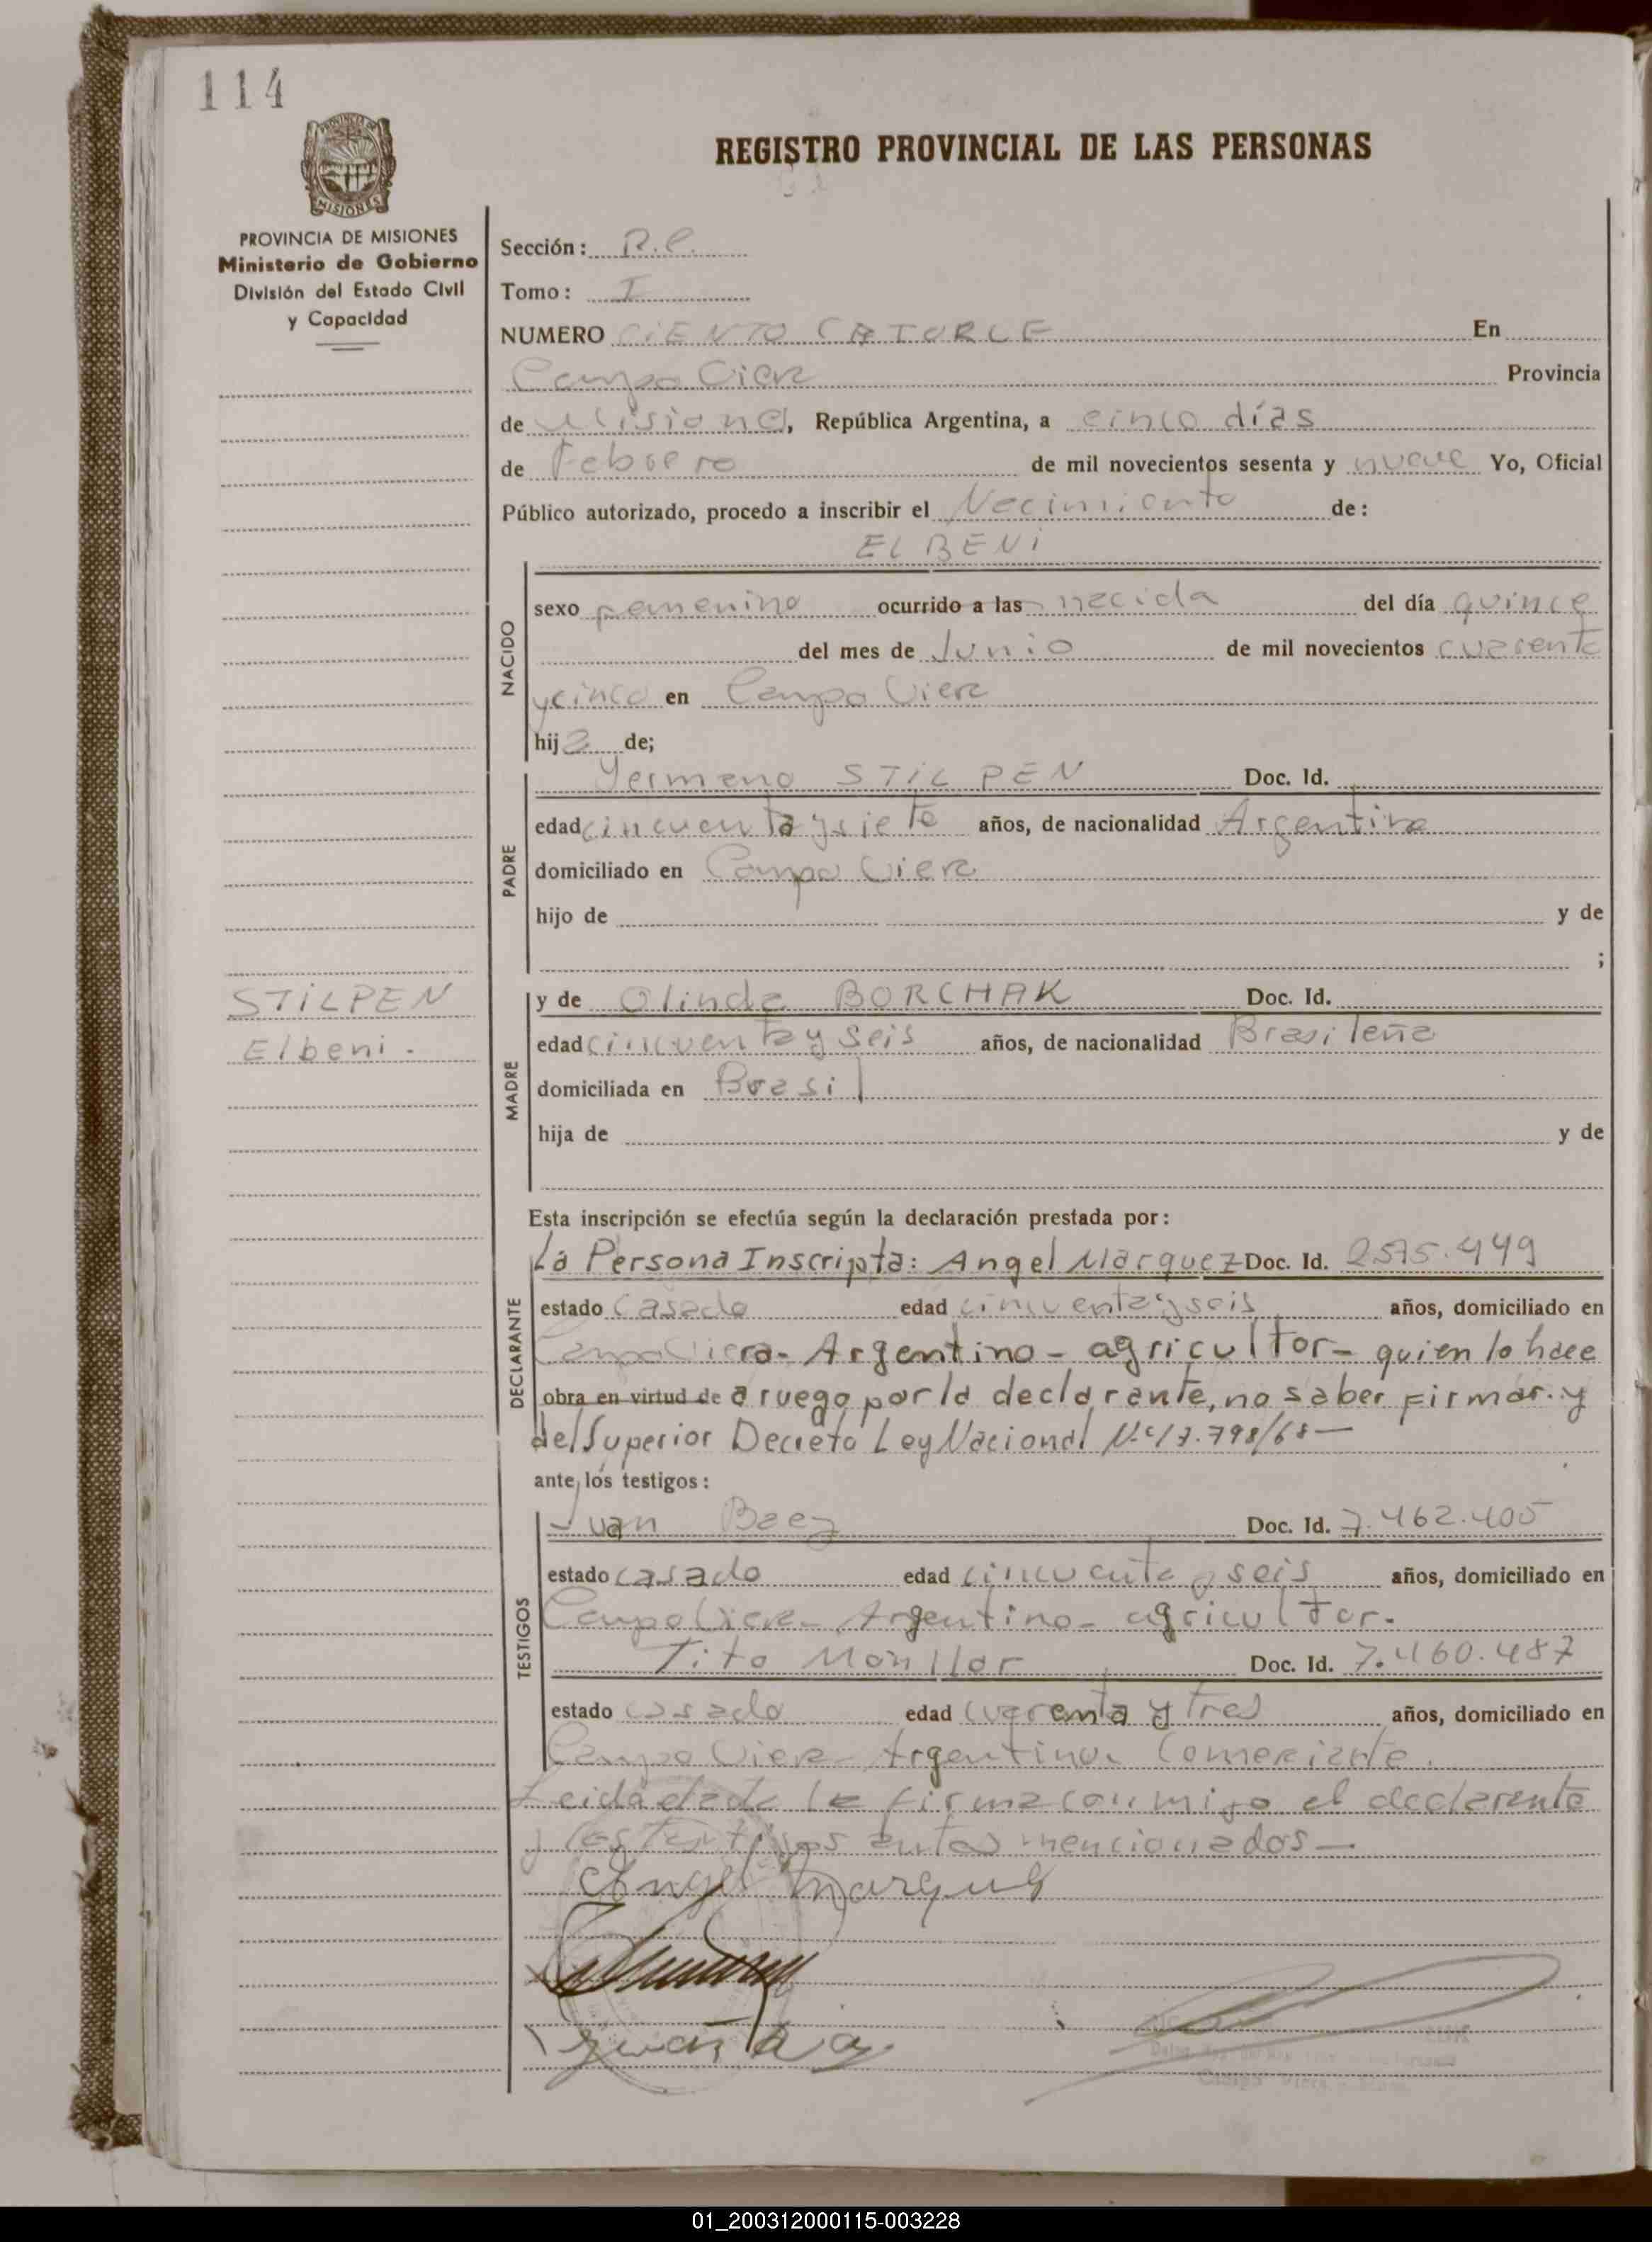 114
PROVINCIA DE MISIONES
Ministerio de Gobierno
División del Estado Civil
y Capacidad
REGISTRO PROVINCIAL DE LAS PERSONAS
Sección: R.C.
Tomo: I
NUMERO CIENTO CATORCE En
Campo Viera Provincia
de Misiones, República Argentina, a cinco días
de Febrero de mil novecientos sesenta y nueve Yo, Oficial
Público autorizado, procedo a inscribir el Nacimiento de:
ELBENI
NACIDO
sexo femenino ocurrido a las nacida del día quince
del mes de Junio de mil novecientos cuarenta
y cinco en Campo Viera
hija de;
PADRE
Germano STILPEN Doc. Id.
edad cincuenta y siete años, de nacionalidad Argentina
domiciliado en Campo Viera
hijo de y de
;
STILPEN
Elbeni.
MADRE
y de Olinda BORCHAK Doc. Id.
edad cincuenta y seis años, de nacionalidad Brasileña
domiciliada en Brasil
hija de y de
Esta inscripción se efectúa según la declaración prestada por:
DECLARANTE
La Persona Inscripta: Angel Marquez Doc. Id. 2.575.449
estado casado edad cincuenta y seis años, domiciliado en
Campo Viera- Argentino- agricultor- quien lo hace
obra en virtud de a ruego por la declarante, no saber firmar. y
del Superior Decreto Ley Nacional N.º 17.798/68—
ante los testigos:
TESTIGOS
Juan Baez Doc. Id. 7.462.405
estado casado edad cincuenta y seis años, domiciliado en
Campo Viera- Argentino- agricultor.
Tito Monllor Doc. Id. 7.460.487
estado casado edad cuarenta y tres años, domiciliado en
Campo Viera- Argentino. Comerciante.
Leida el acta la firma conmigo el declarante
y los testigos antes mencionados—
Angel Marques
Juan
Campo Viera
01_200312000115-003228